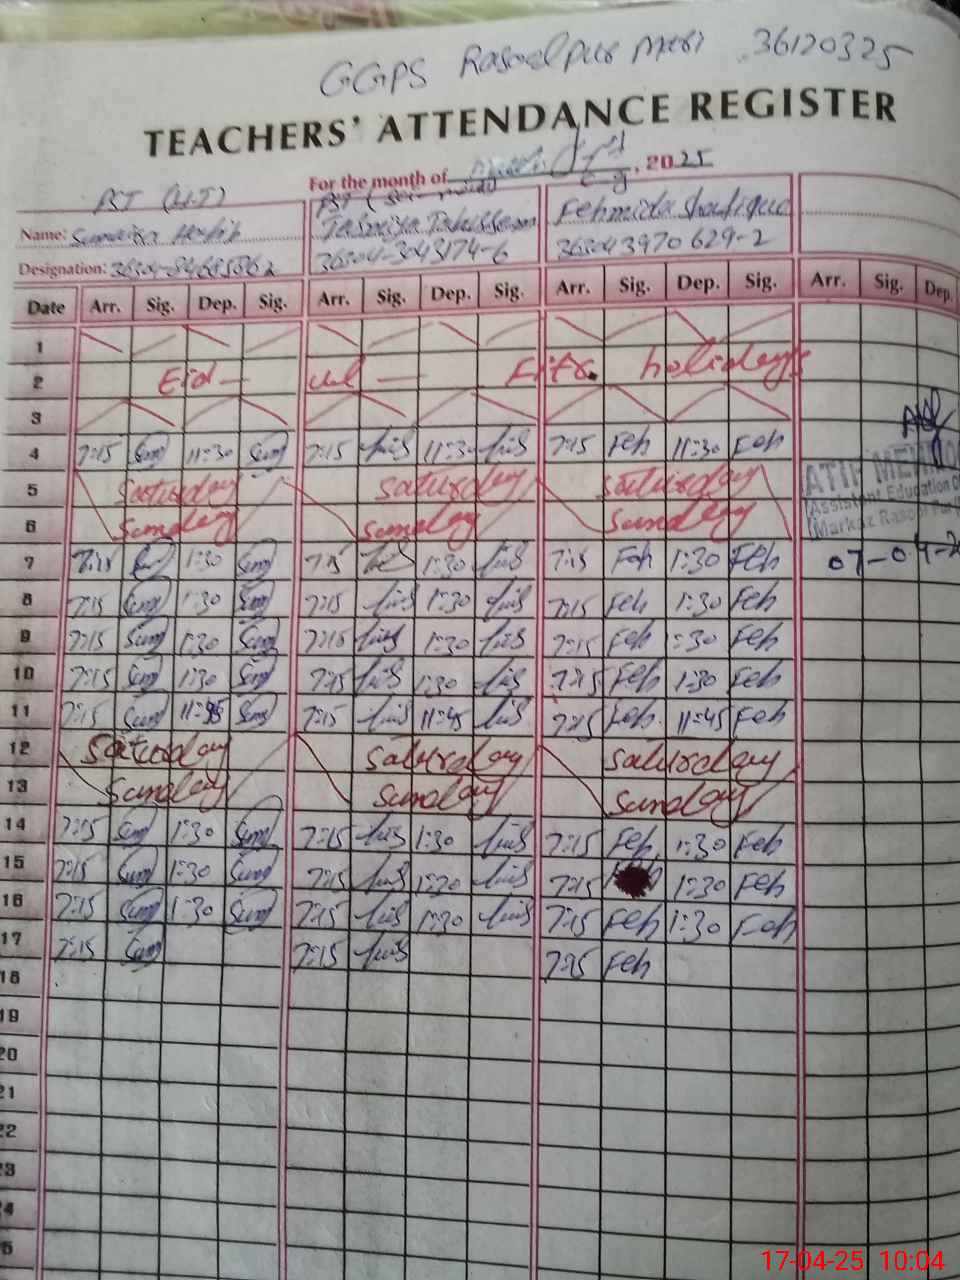 GGPS Rasoolpur Metri 36120325
TEACHERS' ATTENDANCE REGISTER
For the month of , 2025
PST
Name: Fehmida Shafique
Designation: 36304-3043174-6 363043970629-2
Date Arr. Sig. Dep. Sig. Arr. Sig. Dep. Sig. Arr. Sig. Dep. Sig. Arr. Sig. Dep.
1
2 Eid - ul - Fitr. holidays
3
4 7:15 Sum 11:30 Sum 7:15 11:30 7:15 Feh 11:30 Feh
5 Saturday Saturday Saturday
ATIF
Assistant Education
Markaz Rasool Pur
6 Sunday Sunday Sunday
7 7:15 1:30 Sum 7:15 1:30 7:15 Feh 1:30 Feh 07-04-
8 7:15 Sum 1:30 Sum 7:15 1:30 7:15 Feh 1:30 Feh
9 7:15 Sum 1:30 Sum 7:15 1:30 7:15 Feh 1:30 Feh
10 7:15 Sum 1:30 Sum 7:15 1:30 7:15 Feh 1:30 Feh
11 7:15 Sum 11:45 Sum 7:15 11:45 7:15 Feh 11:45 Feh
12 Saturday Saturday Saturday
13 Sunday Sunday Sunday
14 7:15 Sum 1:30 Sum 7:15 1:30 7:15 Feh 1:30 Feh
15 7:15 Sum 1:30 Sum 7:15 1:30 7:15 1:30 Feh
16 7:15 Sum 1:30 Sum 7:15 1:30 7:15 Feh 1:30 Feh
17 7:15 Sum 7:15 7:15 Feh
18
19
20
21
22
23
24
25
17-04-25 10:04